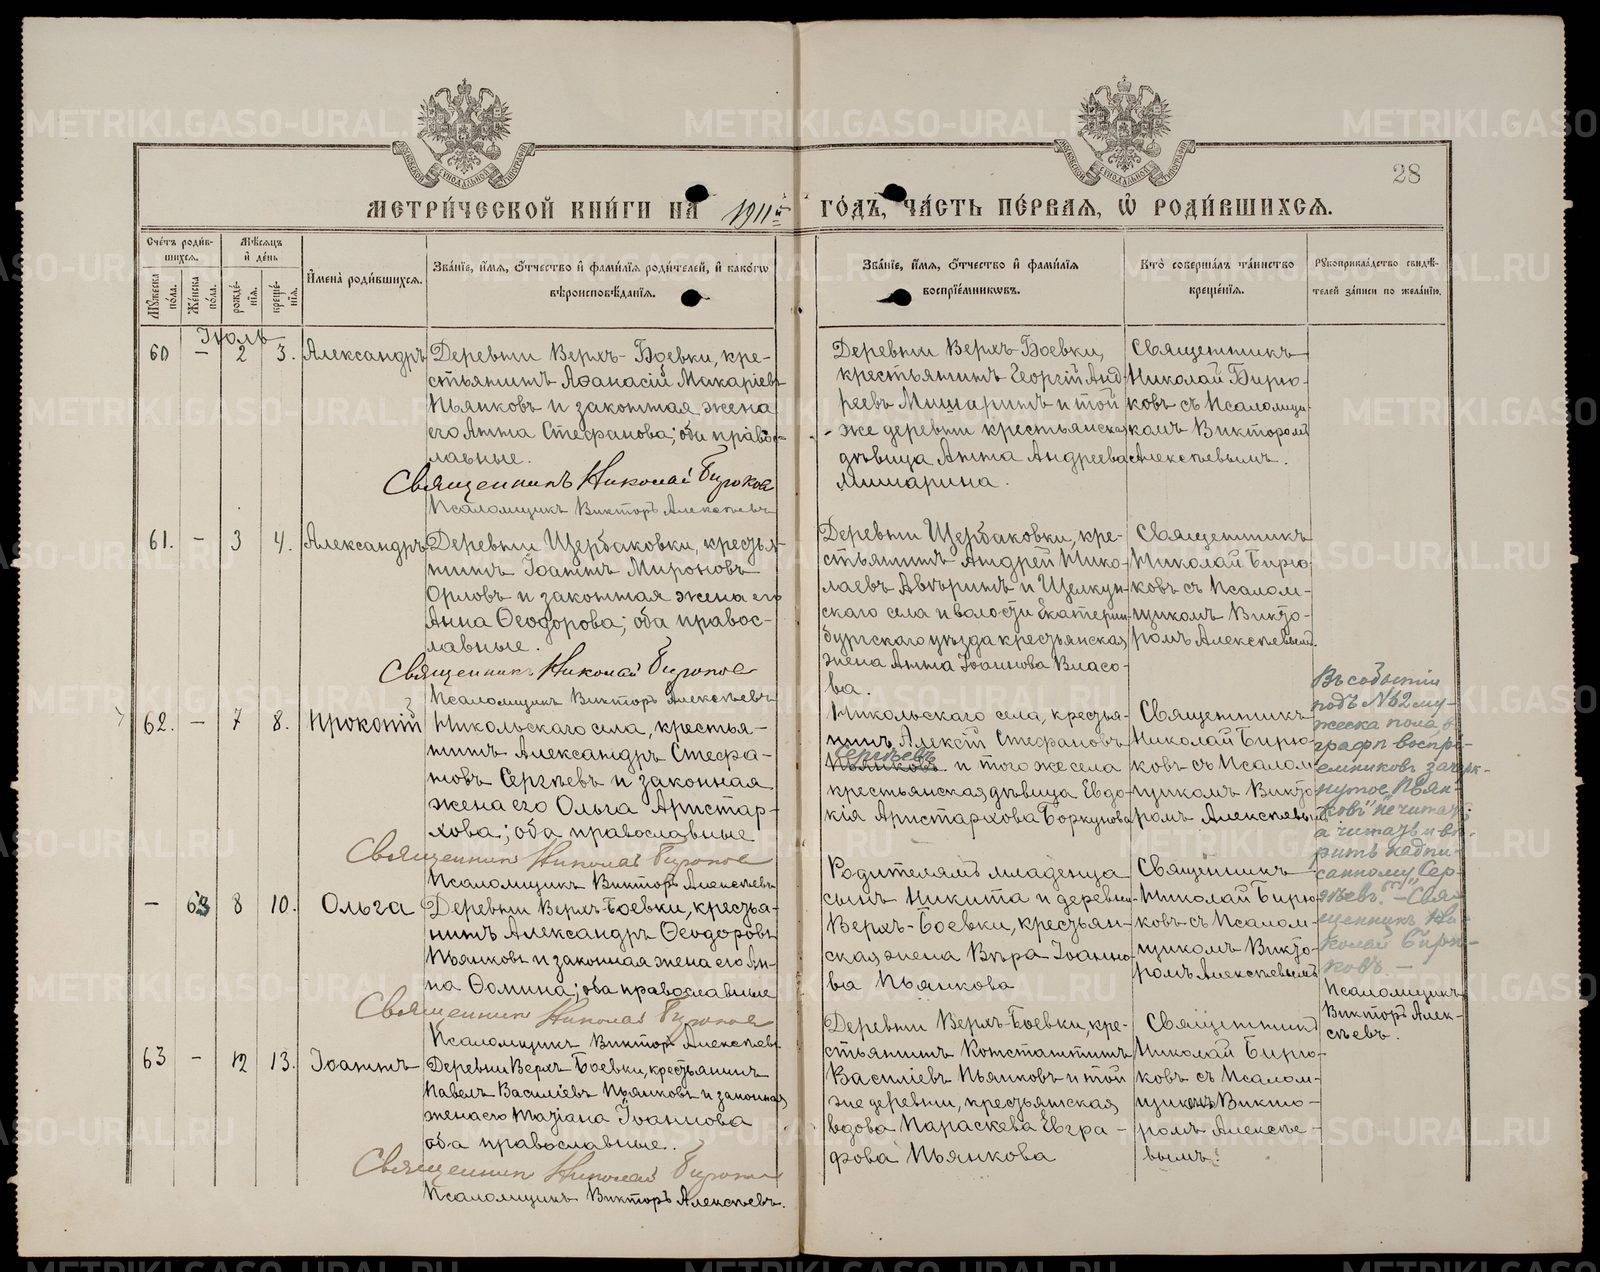 28
МЕТРИ́ЧЕСКОЙ КНИ́ГИ НА 1911й ГО́ДЪ, ЧА́СТЬ ПЕ́РВАЯ, Ѡ҆ РОДИ́ВШИХСѦ.
Сче́тъ роди́в-
шихсѧ.
Мꙋжеска по́ла.
Же́нска по́ла.
Мѣ́сѧцъ
и҆ де́нь
рожде́-
нїѧ.
креще́-
нїѧ.
И҆мена̀ роди́вшихсѧ.
Зва́нїе, и҆́мѧ, ѻ҆́тчество и҆ фами́лїѧ роди́телей, и҆ како́гѡ
вѣроисповѣ́данїѧ.
Зва́нїе, и҆́мѧ, ѻ҆́тчество и҆ фами́лїѧ
воспрїе́мникѡвъ.
Кто̀ соверша́лъ та́инство
креще́нїѧ.
Рꙋкоприкла́дство свидѣ́-
телей за́писи по жела́нїю.
Іюль
60 – 2 3. Александръ
Деревни Верхъ-Боевки, кре-
стьянинъ Аѳанасій Макаріевъ
Пьянковъ и законная жена
его Анна Стефанова; оба правос-
лавные.
Священникъ Николай Бирюков
Псаломщикъ Викторъ Алексѣевъ
Деревни Верхъ-Боевки,
крестьянинъ Георгій Анд-
реевъ Мишаринъ и той
же деревни крестьянская
дѣвица Анна Андреева
Мишарина.
Священникъ
Николай Бирю-
ковъ съ Псаломщи-
комъ Викторомъ
Алексѣевымъ.
61. – 3 4. Александръ
Деревни Щербаковки, крестья-
нинъ Іоаннъ Мироновъ
Орловъ и законная жена его
Анна Ѳеодорова; оба правос-
лавные.
Священникъ Николай Бирюков
Псаломщикъ Викторъ Алексѣевъ
Деревни Щербаковки, кре-
стьянинъ Андрей Нико-
лаевъ Авѣринъ и Щелкун-
скаго села и волости Екатерин-
бургскаго уѣзда крестьянская
жена Анна Іоаннова Власо-
ва.
Священникъ
Николай Бирю-
ковъ съ Псалом-
щикомъ Викто-
ромъ Алексѣевымъ.
62. – 7 8. Прокопій
Никольскаго села, крестья-
нинъ Александръ Стефа-
новъ Сергѣевъ и законная
жена его Ольга Аристар-
хова; оба православные
Священникъ Николай Бирюков
Псаломщикъ Викторъ Алексѣевъ
Никольскаго села, крестья-
нинъ Алексій Стефановъ
Сергѣевъ
Пьянковъ и того же села
крестьянская дѣвица Евдо-
кія Аристархова Боркунова
Священникъ
Николай Бирю-
ковъ съ Псалом-
щикомъ Викто-
ромъ Алексѣевымъ
Въ событіи
подъ №62 му-
жеска пола, въ
графѣ воспрі-
емниковъ зачерк-
нутое „Пьян-
ковъ" не читать,
а читать и вѣ-
рить надпи-
санному „Сер-
гѣевъ". – Свя-
щенникъ Ни-
колай Бирю-
ковъ. –
Псаломщикъ
Викторъ Алек-
сѣевъ.
– 63 8 10. Ольга
Деревни Верхъ-Боевки, крестья-
нинъ Александръ Ѳеодоровъ
Пьянковъ и законная жена его Ан-
на Ѳомина; оба православные
Священникъ Николай Бирюков
Псаломщикъ Викторъ Алексѣевъ.
Родителямъ младенца
сынъ Никита и деревни
Верхъ-Боевки, крестьян-
ская жена Вѣра Іоанно-
ва Пьянкова
Священникъ
Николай Бирю-
ковъ съ Псалом-
щикомъ Викто-
ромъ Алексѣевымъ
63 – 12 13. Іоаннъ
Деревни Верхъ-Боевки, крестьянинъ
Павелъ Василіевъ Пьянковъ и законная
жена его Татіана Іоаннова
оба православные.
Священникъ Николай Бирюков
Псаломщикъ Викторъ Алексѣевъ.
Деревни Верхъ-Боевки, кре-
стьянинъ Константинъ
Василіевъ Пьянковъ и той
же деревни, крестьянская
вдова Параскева Евгра-
фова Пьянкова
Священникъ
Николай Бирю-
ковъ съ Псалом-
щикомъ Викто-
ромъ Алексѣе-
вымъ.
METRIKI.GASO-URAL.RU